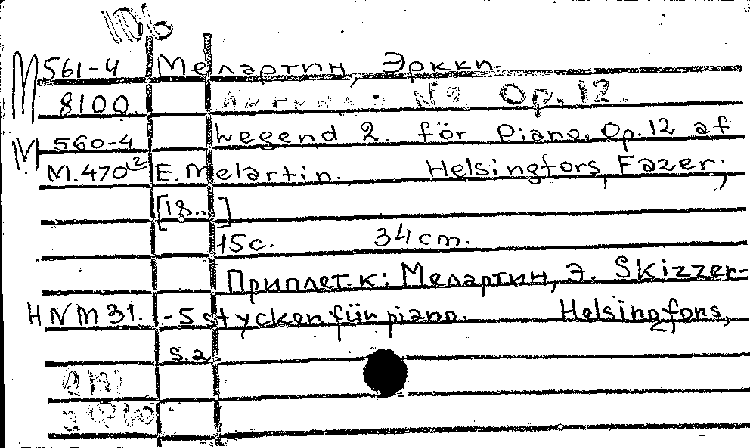 106
М 561-4 Мелартин, Эркки
8100 Легенда № 2 Op. 12.
М 560-4 Legend 2. för Piano. Op. 12 af
М. 470 E. Melartin. Helsingfors, Fazer;
[18..]
15с. 34 cm.
Приплет. к: Мелартин, Э. Skizzer-
Н NM 31. -5 stycken für piano. Helsingfors,
s.a